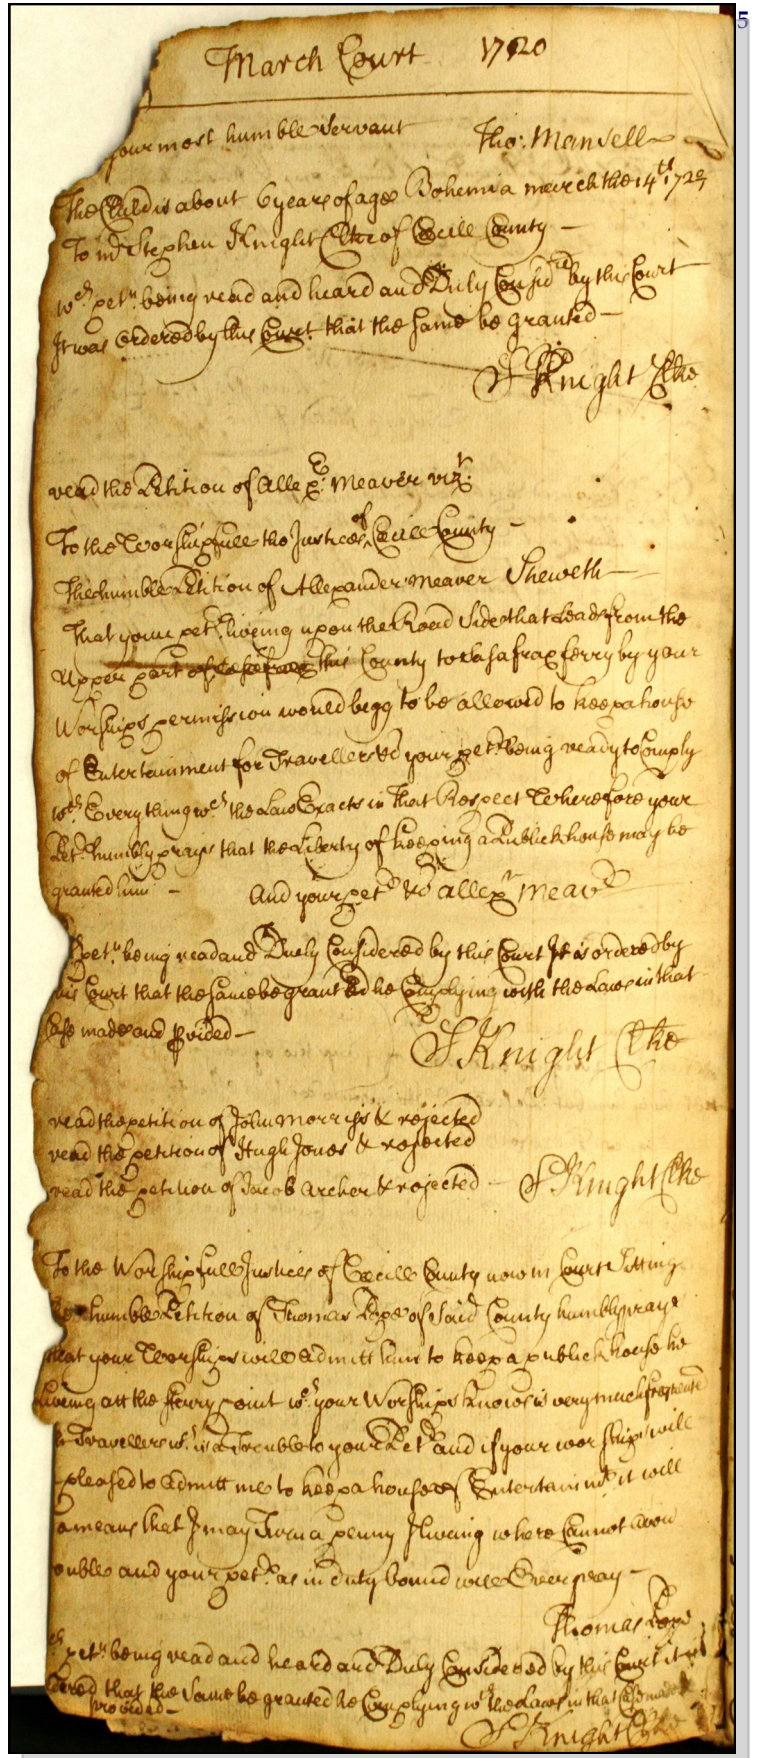 5
March Court 1720
your most humble Servant Tho: Mansell
The Child is about 6 years of age Bohemia march the 14th 1720
To mr Stephen Knight Clke of Cecill County -
wch petn. being read and heard and Duly Considrd by this Court
It was Ordered by this Court that the same be granted -
S Knight Clke
read the Petition of Allexr. Meaver vizt.
To the Worshipfull the Justices of Cecill County -
The humble Petition of Allexander Meaver Sheweth -
That your petr. liveing upon the Road Side that Leads from the
Upper part of this County to Sasafrax ferry by your
Worships permission would begg to be allowed to keep a house
of Entertainment for Travellers &c your petr. being ready to Comply
wth Every thing wch the Law Exacts in That Respect Wherefore your
Petr. humbly prays that the Liberty of keeping a Publick house may be
granted him - And your petr &c allexr Meavr
petn. being read and Duely Considered by this Court It is ordered by
this Court that the same be granted he Complying with the Laws in that
Case made and provided -
S Knight Clke
read the petition of John Morriss & rejected
read the petition of Hugh Jones & rejected
read the petition of Jacob Archer & rejected - S Knight Clke
To the Worshipfull Justices of Cecill County now in Court Sitting
The humble Petition of Thomas Pope of Said County humbly prays
that your Worships will admitt him to keep a publick house he
liveing att the fferry point wch your Worships knows is very much frequented
Travellers wch is a Trouble to your Petr and if your worships will
pleased to admitt me to keep a house of Entertainmt it will
a means that I may Turn a penny I liveing where Cannot avoid
ouble and your petr. as in duty bound will Ever pray -
Thomas Pope
petn being read and heard and Duly Considered by this Court it is
dered that the same be granted he Complying wth the Laws in that Case made
Provided -
S Knight Clke